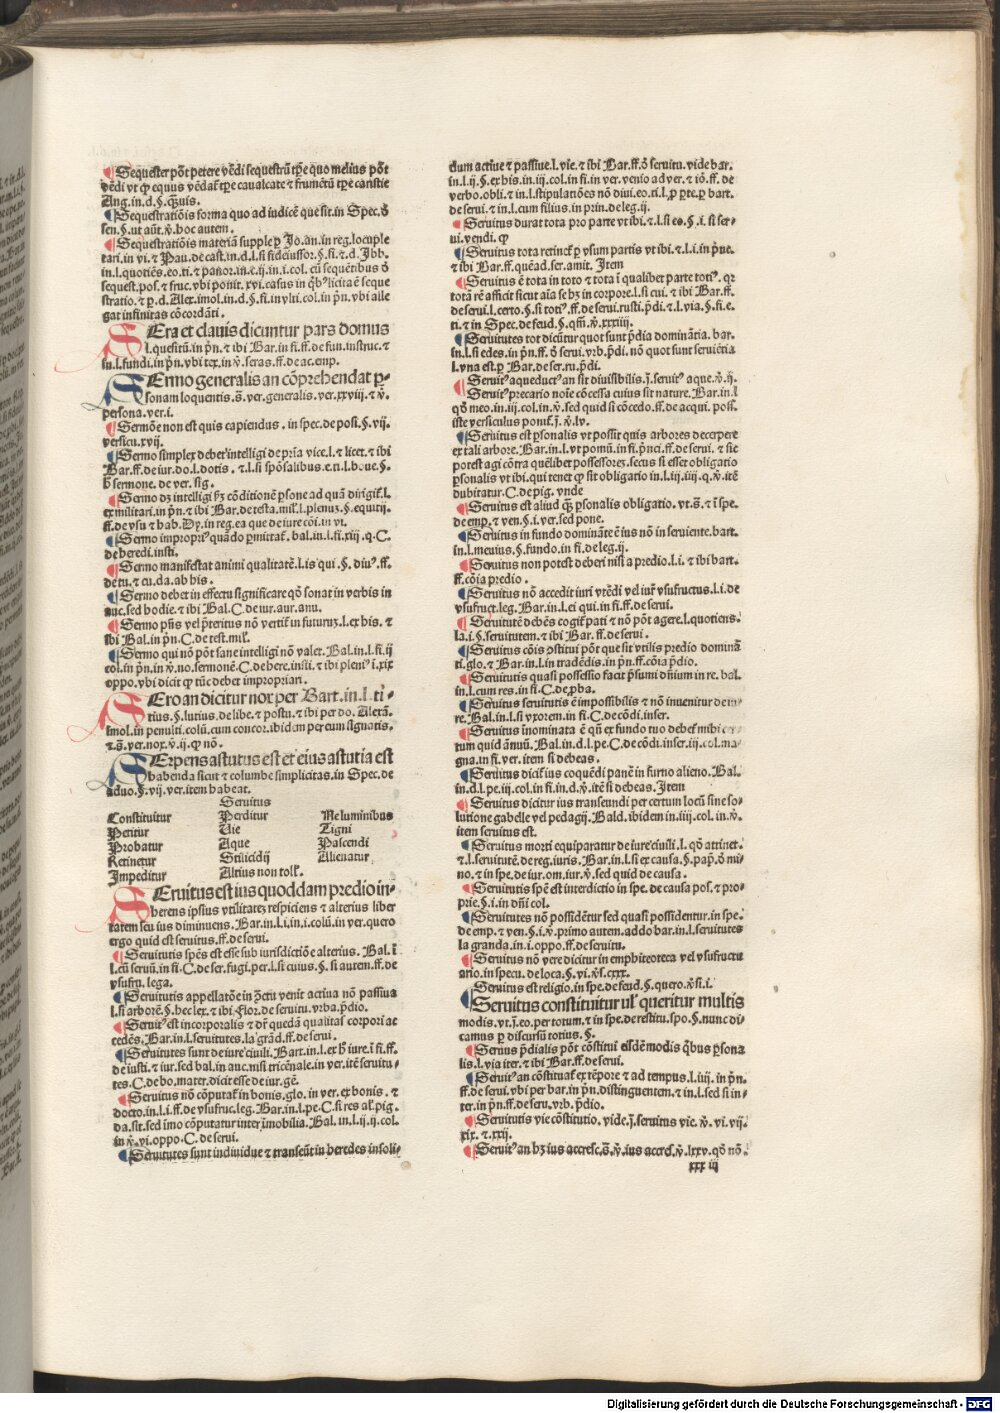 ¶Sequester põt petere vẽdi sequestrũ tꝑe quo melius põt
vẽdi vt ꝙ equus vẽdat᷑ tꝑe caualcate ⁊ frumẽtũ tꝑe caristie
Ang.in.d.§.q̃uis.
¶Sequestratiõis forma quo ad iudicẽ que sit.in Spec.ð
sen.§.vt aũt.ꝟ.hoc autem.
¶Sequestratiõis materiã supple ꝑ Jo.an.in reg.locuple
tari.in vi.⁊ Pau.de cast.in.d.l.si fideiussor.§.fi.⁊.d.Abb.
in.l.quotiẽs.eo.ti.⁊ panor.in.c.ij.in.i.col.cũ sequẽtibus ð
sequest.pos.⁊ fruc.vbi ponit.xvi.casus in q̇bꝰ licita ẽ seque
stratio.⁊ ꝑ.d.Alex.imol.in.d.§.fi.in vlti.col.in pñ.vbi alle
gat infinitas cõcordãti.
SEra et clauis dicuntur pars domus
l.quesitũ.in pñ.⁊ ibi Bar.in fi.ff.de fun.instruc.⁊
in.l.fundi.in pñ.vbi tex.in ꝟ.seras.ff.de ac.emp.
SErmo generalis an cõprehendat ꝑ-
sonam loquentis.s̃.ver.generalis.ver.xxviij.⁊ ꝟ.
persona.ver.i.
¶Sermõe non est quis capiendus.in spec.de posi.§.vij.
versicu.xvij.
¶Sermo simplex debet᷑ intelligi de pria vice.l.⁊ licet.⁊ ibi
Bar.ff.de iur.do.l.dotis.⁊.l.si spõsalibus.e.ti.l.boue.§.
h̃ sermone.de ver.sig.
¶Sermo dꝫ intelligi ẜꝫ cõditionẽ ꝑsone ad quã dirigit᷑.l.
ex militari.in pñ.⁊ ibi Bar.de testa.mil᷑.l.plenuꝫ.§.equitij.
ff.de vsu ⁊ hab.Dy.in reg.ea que de iure cõi.in vi.
¶Sermo impropriꝰ quãdo ꝑmittat᷑.bal.in.l.fi.xij.q.C.
de heredi.insti.
¶Sermo manifestat animi qualitatẽ.l.is qui.§.diuꝰ.ff.
de tu.⁊ cu.da.ab his.
¶Sermo debet in effectu significare qð sonat in verbis in
auc.sed hodie.⁊ ibi Bal.C.de iur.aur.anu.
¶Sermo pñs vel p̃teritus nõ vertit᷑ in futuruꝫ.l.ex his.⁊
ibi Bal.in pñ.C.de test.mil᷑.
¶Sermo qui nõ põt sane intelligi nõ valet.Bal.in.l.fi.ij
col.in pñ.in ꝟ.no.sermonẽ.C.de here.insti.⁊ ibi pleniꝰ i.xix
oppo.vbi dicit ꝙ tũc debet improprian.
SEro an dicitur nox per Bart.in.l.ti-
tius.§.lutius.de libe.⁊ postu.⁊ ibi per do.Alexã.
imol.in penulti.colũ.cum concor.ibidem per eum signatis.
⁊.s̃.ver.nox.ꝟ.ij.ꝙ nõ.
SErpens astutus est et eius astutia est
habenda sicut ⁊ columbe simplicitas.in Spec.de
aduo.§.vij.ver.item habeat.
Seruitus
Constituitur Perditur Ne luminibus
Petitur Vie Tigni
Probatur Aque Pascendi
Retinetur Stilicidij Alienatur
Impeditur Altius non toll᷑.
SEruitus est ius quoddam predio in-
herens ipsius vtilitateꝫ respiciens ⁊ alterius liber
tatem seu ius diminuens.Bar.in.l.i.in.i.colũ.in ver.quero
ergo quid est seruitus.ff.de serui.
¶Seruitutis spẽs est esse sub iurisdictiõe alterius.Bal.ĩ
l.cũ seruũ.in fi.C.de ser.fugi.per.l.si cuius.§.si autem.ff.de
vsufru.lega.
¶Seruitutis appellatõe in ꝺctu venit actiua nõ passiua
l.si arborẽ.§.hec lex.⁊ ibi Flor.de seruitu.vrba.p̃dio.
¶Seruitꝰ est incorporalis ⁊ dr̃ quedã qualitas corpori ac
cedẽs.Bar.in.l.seruitutes.la grãd.ff.de serui.
¶Seruitutes sunt de iure ciuili.Bart.in.l.ex h̃ iure.ĩ fi.ff.
de iusti.⁊ iur.sed bal.in auc.nisi tricẽnale.in ver.itẽ seruitu-
tes.C.de bo.mater.dicit esse de iur.gẽ.
¶Seruitus nõ cõputat᷑ in bonis.glo.in ver.ex bonis.⁊
docto.in.l.i.ff.de vsufruc.leg.Bar.in.l.pe.C.si res al᷑.pig.
da.sit.sed imo cõputatur inter ĩmobilia.Bal.in.l.ij.ij.col.
in ꝟ.vi.oppo.C.de serui.
¶Seruitutes sunt indiuidue ⁊ transeũt in heredes insoli-
dum actiue ⁊ passiue.l.vie.⁊ ibi Bar.ff.ð seruitu.vide bar.
in.l.ij.§.ex his.in.iij.col.in fi.in ver.venio ad ver.⁊ iõ.ff.de
verbo.obli.⁊ in.l.stipulatiões nõ diui.eo.ti.l.ꝓ ꝑte.ꝑ bart.
de serui.⁊ in.l.cum filius.in prin.de leg.ij.
¶Seruitus durat tota pro parte vt ibi.⁊.l.si es.§.i.si ser-
ui.vendi.ꝙ
¶Seruitus tota retinet᷑ ꝑ vsum partis vt ibi.⁊.l.i.in p̃ue.
⁊ ibi Bar.ff.quẽad.ser.amit.Item
¶Seruitus ẽ tota in toto ⁊ tota ĩ qualibet parte totiꝰ.qꝛ
totã rẽ afficit sicut aĩa se hꝫ in corpore.l.si cui.⁊ ibi Bar.ff.
de serui.l.certo.§.si totiꝰ.ff.de serui.rusti.p̃di.⁊.l.via.§.si e.
ti.⁊ in Spec.de feud.§.qm̃.ꝟ.xxxiiij.
¶Seruitutes tot dicũtur quot sunt p̃dia dominãtia.bar.
in.l.si edes.in pñ.ff.ð serui.vꝛb.p̃di.nõ quot sunt seruiẽtia
l.vna est.ꝑ Bar.de ser.ru.p̃di.
¶Seruitꝰ aqueductꝰ an sit diuisibilis.ĵ.seruitꝰ aque.ꝟ.ij.
¶Seruitꝰ precario noĩe cõcessa cuius sit nature.Bar.in.l
qð meo.in.iij.col.in ꝟ.sed quid si cõcedo.ff.de acqui.poss.
iste versiculus ponit᷑.ĵ.ꝟ.lv.
¶Seruitus est ꝑsonalis vt possit quis arbores decerpere
ex tali arbore.Bar.in.l.vt pomũ.in fi.pñci.ff.de serui.⁊ sic
potest agi cõtra quẽlibet possessoreꝫ.secus si esset obligatio
ꝑsonalis vt ibi.qui tenet ꝙ sit obligatio in.l.ij.iij.q.ꝟ.itẽ
dubitatur.C.de pig.vnde
¶Seruitus est aliud q̃ꝫ ꝑsonalis obligatio.vt.s̃.⁊ ĩ spe.
de emp.⁊ ven.§.i.ver.sed pone.
¶Seruitus in fundo dominãte ẽ ius nõ in seruiente.bart.
in.l.meuius.§.fundo.in fi.de leg.ij.
¶Seruitus non potest deberi nisi a predio.l.i.⁊ ibi bart.
ff.cõia predio.
¶Seruitus nõ accedit iuri vtẽdi vel iur᷑ vsufructus.l.i.de
vsufruct.leg.Bar.in.l.ei qui.in fi.ff.de serui.
¶Seruitutẽ debẽs cogit᷑ pati ⁊ nõ põt agere.l.quotiens.
la.i.§.seruitutem.⁊ ibi Bar.ff.de serui.
¶Seruitus cõis ꝯstitui põt que sit vtilis predio dominã
ti.glo.⁊ Bar.in.l.in tradẽdis.in pñ.ff.cõia p̃dio.
¶Seruitutis quasi possessio facit p̃sumi dñium in re.bal.
in.l.cum res.in fi.C.de ꝓba.
¶Seruitus seruitutis ẽ impossibilis ⁊ nõ inuenitur de iu-
re.Bal.in.l.si vxorem.in fi.C.de cõdi.inser.
¶Seruitus inominata ẽ qñ ex fundo tuo debet᷑ mihi cer-
tum quid ãnuũ.Bal.in.d.l.pe.C.de cõdi.inser.iij.col.ma-
gna.in fi.ver.item si debeas.
¶Seruitus dicit᷑ ius coquẽdi panẽ in furno alieno.Bal.
in.d.l.pe.iij.col.in fi.in.d.ꝟ.itẽ si debeas.Item
¶Seruitus dicitur ius transeundi per certum locũ sine so-
lutione gabelle vel pedagij.Bald.ibidem in.iiij.col.in.ꝟ.
item seruitus est.
¶Seruitus morti equiparatur de iure ciuili.l.qð attinet.
⁊.l.seruitutẽ.de reg.iuris.Bar.in.l.si ex causa.§.papꝰ.ð mi-
no.⁊ in spe.de iur.om.iur.ꝟ.sed quid de causa.
¶Seruitutis spẽ est interdictio in spe.de causa pos.⁊ pro-
prie.§.i.in dñi col.
¶Seruitutes nõ possidẽtur sed quasi possidentur.in spe.
de emp.⁊ ven.§.i.ꝟ.primo autem.addo bar.in.l.seruitutes
la granda.in.i.oppo.ff.de seruitu.
¶Seruitus nõ vere dicitur in emphiteoteca vel vsufructu
ario.in specu.de loca.§.vi.ꝟsi.cxxx.
¶Seruitus est religio.in spe.de feud.§.quero.ꝟsi.i.
¶Seruitus constituitur ul᷑ queritur multis
modis.vt.ĵ.eo.per totum.⁊ in spe.de restitu.spo.§.nunc di-
camus ꝑ discursũ totius.§.
¶Seruitus p̃dialis põt cõstitui eisdẽ modis q̇bus ꝑsona
lis.l.via iter.⁊ ibi Bar.ff.de serui.
¶Seruitꝰ an cõstituat᷑ ex tẽpore ⁊ ad tempus.l.iiij.in pñ.
ff.de serui.vbi per bar.in pñ.distinguentem.⁊ in.l.sed si in-
ter.in pñ.ff.de seru.vꝛb.p̃dio.
¶Seruitutis vie cõstitutio.vide.ĵ.seruitus vie.ꝟ.vi.vij.
xix.⁊.xxij.
¶Seruitꝰ an hꝫ ius accresc.s̃.ꝟ.ius accres.ꝟ.lxxv.qð nõ.
xxx iij
Digitalisierung gefördert durch die Deutsche Forschungsgemeinschaft - DFG